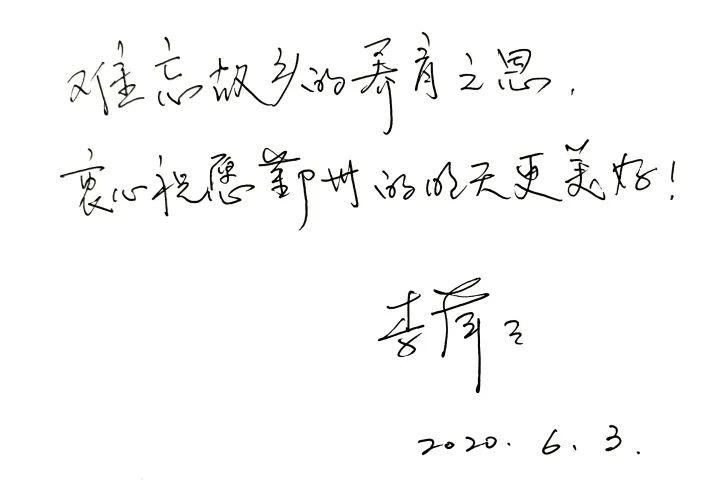 难忘故乡的养育之恩，
衷心祝愿鄞州的明天更美好！
李
2020.6.3.